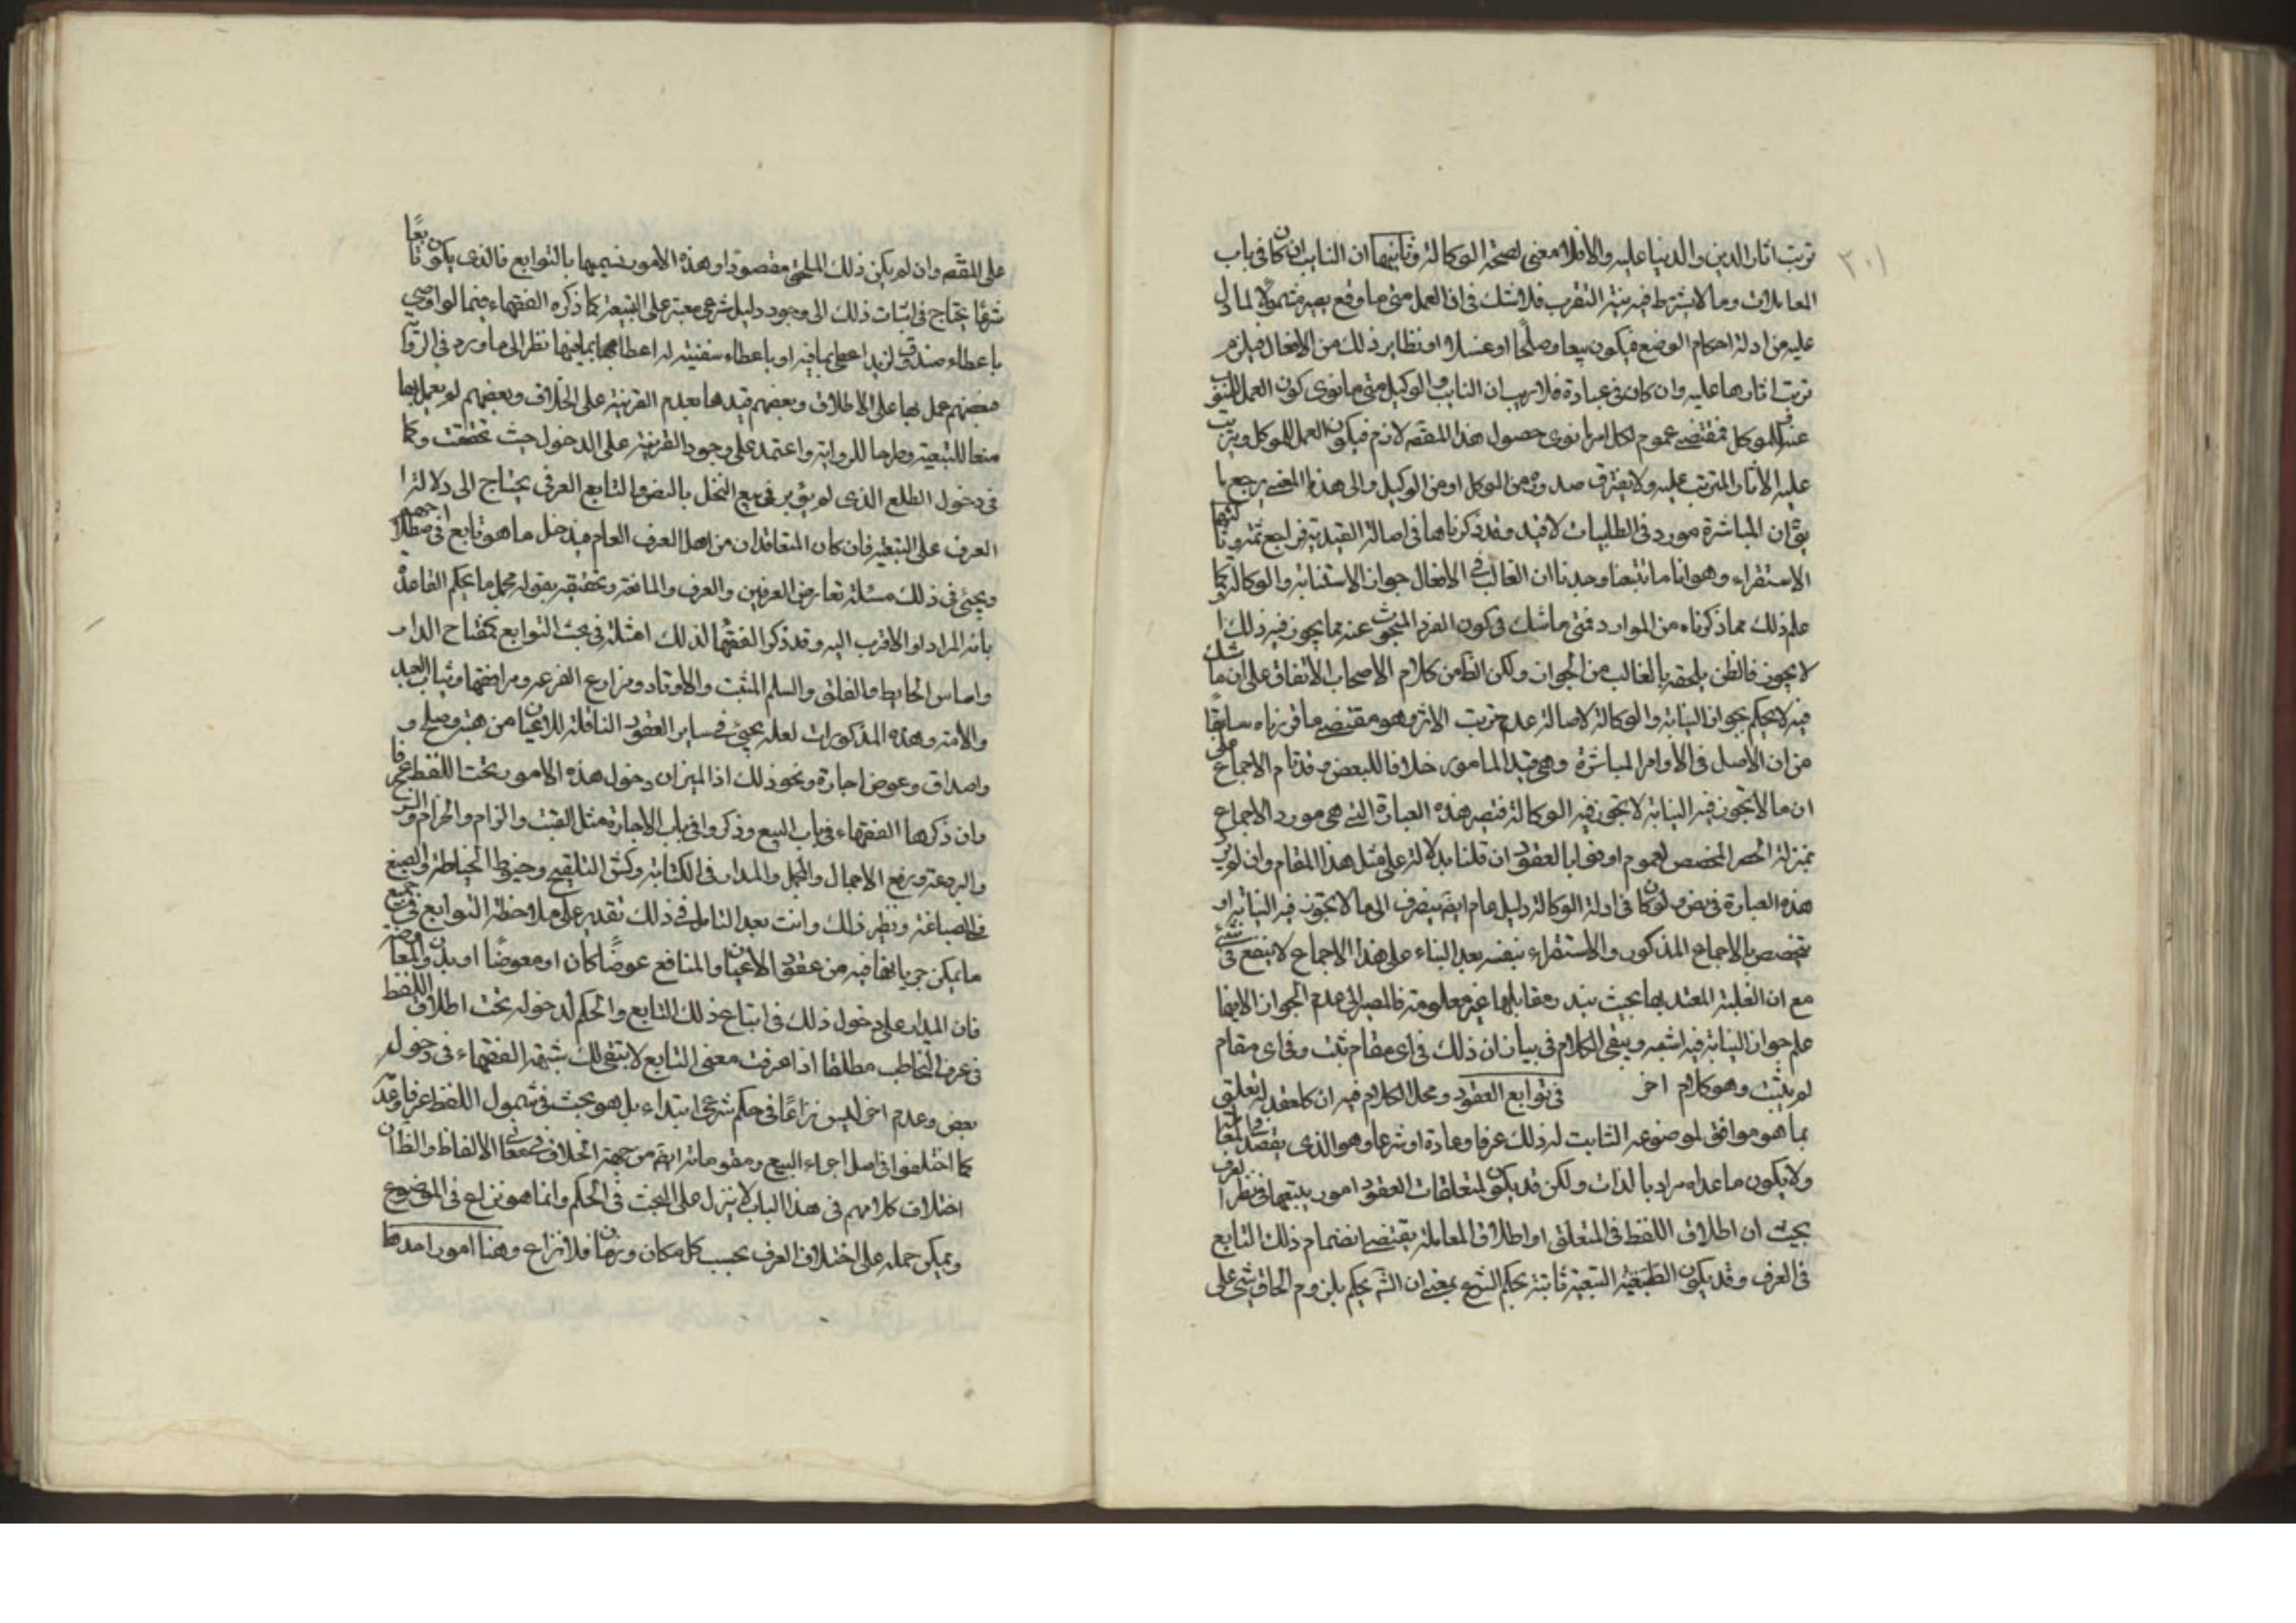 ٣٠١
ترتب اثار الدين والدنيا عليه والا فلا معنى لصحة الوكالة وثانيهما ان النايب ان كان في باب
المعاملات وما لا يشترط فيه نية التقرب فلا شك في ان العمل متى ما وقع يصير مشمولا لما دل
عليه من ادلة احكام الوضع فيكون بيعا وصلحا او غسلا او نظاير ذلك من الافعال فيلزم
ترتب اثارها عليه وان كان في عبادة فلا ريب ان النايب والوكيل متى ما نوى كون العمل للمنوب
عنه للموكل فمقتضى عموم لكل امرا نوى حصول هذا المقصد لازم فيكون العمل للموكل ويترتب
عليه الاثار المترتب عليه ولا يفترق صدوره من الموكل او من الوكيل والى هذا المعنى يرجع ما
يق ان المباشرة مورد في الطلبيات لا قيد وقد ذكرناها في اصالة القيدية فراجع ثمة وثالثها
الاستقراء وهو انا ما تتبعنا وجدنا ان الغالب في الافعال جواز الاستنابة والوكالة كما
علم ذلك مما ذكرناه من الموارد فمتى ما شك في كون الفرد المبحوث عنه مما يجوز فيه ذلك او
لا يجوز فالظن يلحقه بالغالب من الجواز ولكن الظ من كلام الاصحاب الاتفاق على ان ما شك
فيه لا يحكم بجواز النيابة والوكالة لاصالة عدم ترتب الاثر وهو مقتضى ما قررناه سابقا
من ان الاصل في الاوامر المباشرة وهي قيد المامور خلافا للبعض وقد قام الاجماع على
ان ما لا تجوز فيه النيابة لا تجوز فيه الوكالة فتصير هذه العبارة التي هي مورد الاجماع
بمنزلة الخبر المخصص لعموم اوفوا بالعقود ان قلنا بدلالته على مثل هذا المقام وان لم يرد
هذه العبارة في نص ولو كان في ادلة الوكالة دليل عام ايضا ينصرف الى ما لا تجوز فيه النيابة او
يتخصص بالاجماع المذكور والاستقراء بنفسه بعد البناء على هذا الاجماع لا ينفع في شئ
مع ان الغلبة المعتد بها بحيث يندر مقابلها غير معلومة فالمصير الى عدم الجواز الا فيما
علم جواز النيابة فيه اشبه ويبقى الكلام في بيان ان ذلك في اي مقام ثبت وفي اي مقام
لم يثبت وهو كلام اخر في توابع العقود ومحل الكلام فيه ان كل عقد له تعلق
بما هو موافق لموضوعه الثابت له ذلك عرفا وعادة او شرعا وهو الذي يقصده المتعاقدان
ولا يكون ما عداه مراد بالذات ولكن قد يكون لمتعلقات العقود امور يتبعها في نظر العرف
بحيث ان اطلاق اللفظ في المتعلق او اطلاق المعاملة يقتضي انضمام ذلك التابع
في العرف وقد يكون التبعية ثابتة بحكم الشرع بمعنى ان الش يحكم بلزوم الحاق شئ على
على المقصد وان لم يكن ذلك الملحق مقصودا وهذه الامور نسميها بالتوابع فالذي يكون تابعا
شرعا يحتاج في اثبات ذلك الى وجود دليل شرعي معتبر على التبعية كما ذكره الفقهاء فيما لو اوصي
باعطاء صندوق لزيد اعطي بما فيه او باعطاء سفينة له اعطاهما بما فيها نظر الى ما ورد في الروايات
فبعضهم عمل بها على الاطلاق وبعضهم قيدها بعدم القرينة على الخلاف وبعضهم لم يعمل بها
منعا للتبعية وطرحا للرواية واعتمد على وجود القرينة على الدخول حيث تحققت وكما
في دخول الطلع الذي لم يؤبر في بيع النخل بالنص والتابع العرفي يحتاج الى دلالة
العرف على التبعية فان كان المتعاقدان من اهل العرف العام فيدخل ما هو تابع في اصطلاحهم
ويجئ في ذلك مسئلة تعارض العرفين والعرف والمانعة وتحقيقه بقوله محمل ما يحكم القاعدة
بانه المراد او الاقرب اليه وقد ذكر الفقها لذلك امثلة في بحث التوابع كمفتاح الدار
واساس الحايط والغلق والسلم المثبت والاوتاد ومزارع القرية ومرافقها وثياب العبد
والامة وهذه المذكورات لعله يجئ في ساير العقود الناقلة للاعيان من هبة وصلح و
واصداق وعوض اجارة ونحو ذلك اذ الميزان دخول هذه الامور تحت اللفظ عرفا
وان ذكرها الفقهاء في باب البيع وذكروا في باب الاجارة مثل القتب والزام والحزام والسرج
والبردعة ورفع الاحمال والمحمل والمداد في الكتابة وكش التلقيح وخيوط الخياطة والصبغ
في الصباغة ونظير ذلك وانت بعد التامل في ذلك تقدير على ملاحظة التوابع في جميع
ما يمكن جريانها فيه من عقود الاعيان والمنافع عوضا كان او معوضا او بدون المعاوضة
فان المدار على دخول ذلك في اتباع ذلك التابع والحكم لدخوله تحت اطلاق اللفظ
في عرف التخاطب مطلقا اذا عرفت معنى التابع لا يبقى لك شبهة الفقهاء في دخول
بعض وعدم اخر ليس نزاعا في حكم شرعي ابتداء بل هو بحث في شمول اللفظ عرفا وعدمه
كما اختلفوا في اصل اجراء البيع ومقوماته ايضا من جهة الخلاف في معاني الالفاظ والظ ان
اختلاف كلامهم في هذا الباب لا ينزل على البحث في الحكم وانما هو نزاع في الموضوع
ويمكن حمله على اختلاف العرف بحسب كل مكان وزمان فلا نزاع وهنا امور احدها